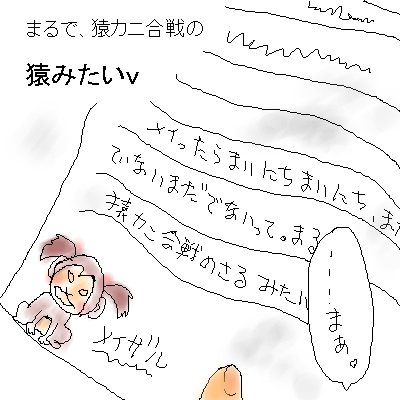 まるで、猿カニ合戦の
猿みたいv
メイったらまいにちまいにち、まだ
でないまだでないって。まる
猿カニ合戦のさるみたい
メイザル
・・・・まぁ。